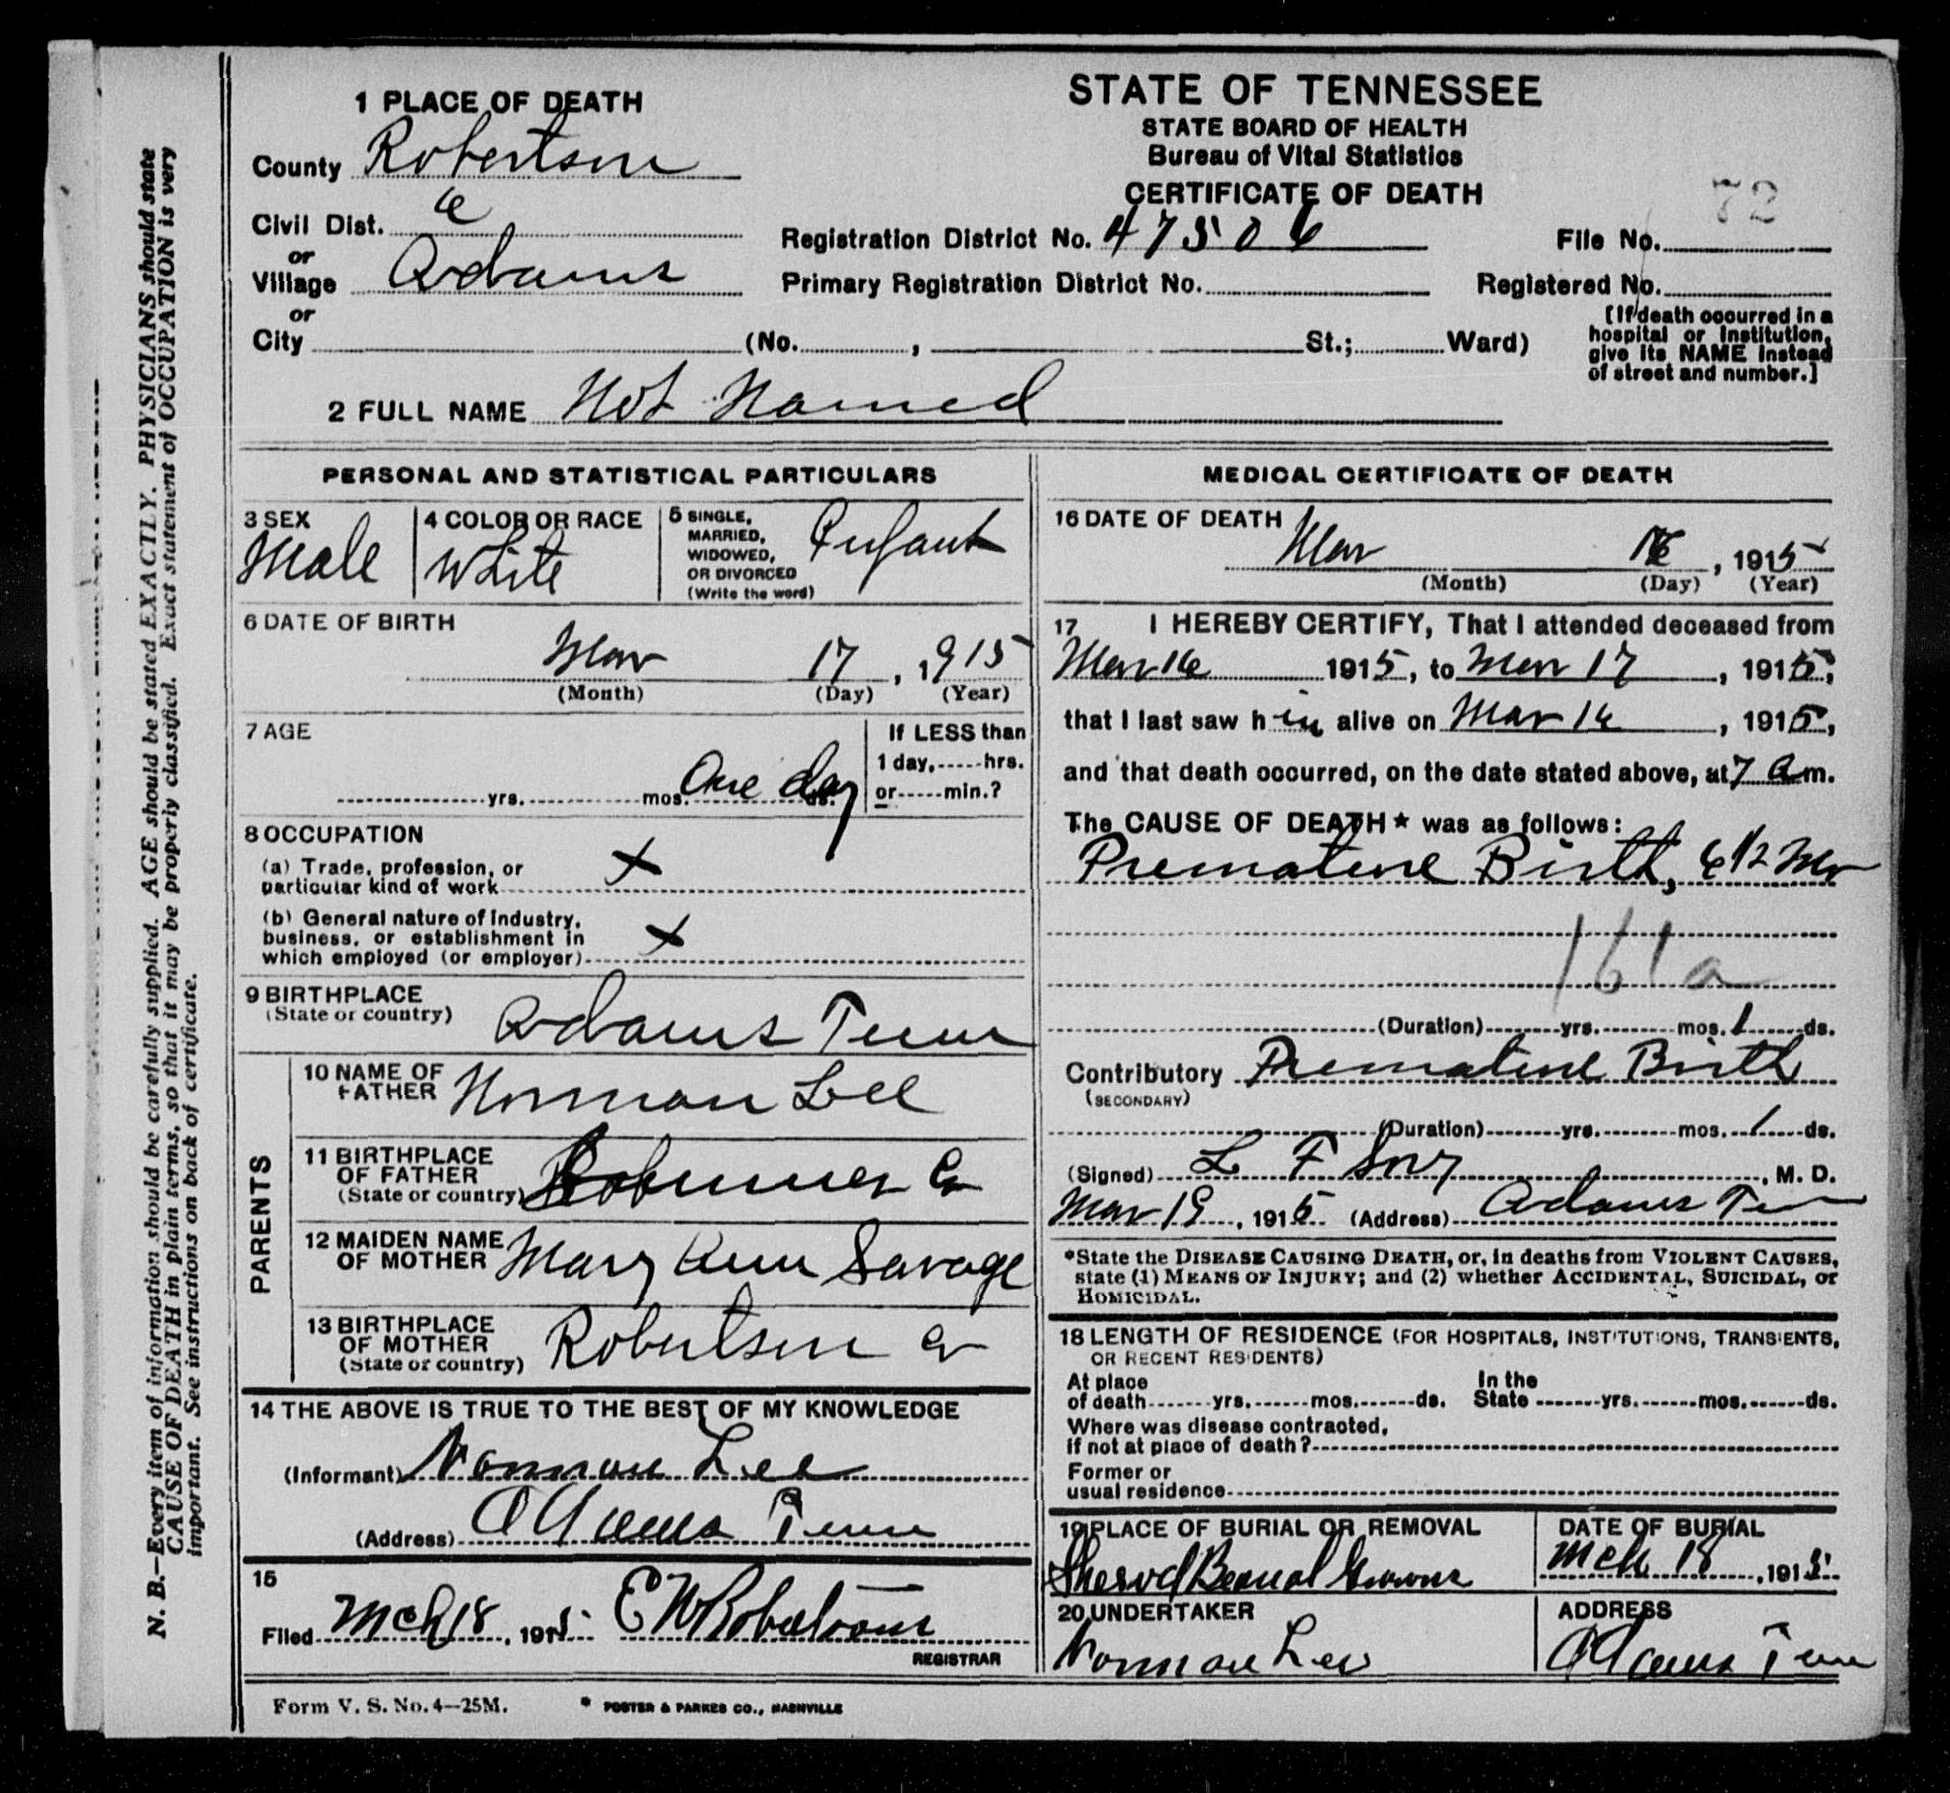 1 PLACE OF DEATH
County Robertson
Civil Dist. 6
or
Village Adams
or
City (No. , St.; Ward)
STATE OF TENNESSEE
STATE BOARD OF HEALTH
Bureau of Vital Statistics
CERTIFICATE OF DEATH
72
Registration District No. 47506 File No.
Primary Registration District No. Registered No.
[If death occurred in a
hospital or institution,
give its NAME instead
of street and number.]
2 FULL NAME Not Named
PERSONAL AND STATISTICAL PARTICULARS
3 SEX
Male
4 COLOR OR RACE
White
5 SINGLE,
MARRIED,
WIDOWED,
OR DIVORCED
(Write the word)
Infant
6 DATE OF BIRTH
Mar 17, 1915
(Month) (Day) (Year)
7 AGE
yrs. mos. One day ds.
If LESS than
1 day,-----hrs.
or-----min.?
8 OCCUPATION
(a) Trade, profession, or
particular kind of work x
(b) General nature of industry,
business, or establishment in
which employed (or employer) x
9 BIRTHPLACE
(State or country) Adams Tenn
PARENTS
10 NAME OF
FATHER Norman Lee
11 BIRTHPLACE
OF FATHER
(State or country) Co
12 MAIDEN NAME
OF MOTHER Mary Ann Savage
13 BIRTHPLACE
OF MOTHER
(State or country) Robertson Co
14 THE ABOVE IS TRUE TO THE BEST OF MY KNOWLEDGE
(Informant) Norman Lee
(Address) Adams Tenn
15
Filed Mch 18, 1915 E W Robertson
REGISTRAR
MEDICAL CERTIFICATE OF DEATH
16 DATE OF DEATH
Mar , 1915
(Month) (Day) (Year)
17 I HEREBY CERTIFY, That I attended deceased from
Mar 16 1915, to Mar 17, 1915,
that I last saw h im alive on Mar 16, 1915,
and that death occurred, on the date stated above, at 7 a m.
The CAUSE OF DEATH* was as follows:
Premature Birth, 6 1/2 Mo
161a
(Duration) yrs. mos. 1 ds.
Contributory Premature Birth
(SECONDARY)
(Duration) yrs. mos. 1 ds.
(Signed) L F Sory, M. D.
Mar 19, 1915 (Address) Adams Tenn
*State the DISEASE CAUSING DEATH, or, in deaths from VIOLENT CAUSES,
state (1) MEANS OF INJURY; and (2) whether ACCIDENTAL, SUICIDAL, or
HOMICIDAL.
18 LENGTH OF RESIDENCE (FOR HOSPITALS, INSTITUTIONS, TRANSIENTS,
OR RECENT RESIDENTS)
At place
of death yrs. mos. ds.
In the
State yrs. mos. ds.
Where was disease contracted,
if not at place of death?
Former or
usual residence
19 PLACE OF BURIAL OR REMOVAL
DATE OF BURIAL
Mch 18, 1915
20 UNDERTAKER
Norman Lee
ADDRESS
Adams Tenn
Form V. S. No. 4—25M.
* FOSTER & PARKES CO., NASHVILLE
N. B.—Every item of information should be carefully supplied. AGE should be stated EXACTLY. PHYSICIANS should state
CAUSE OF DEATH in plain terms, so that it may be properly classified. Exact statement of OCCUPATION is very
important. See instructions on back of certificate.